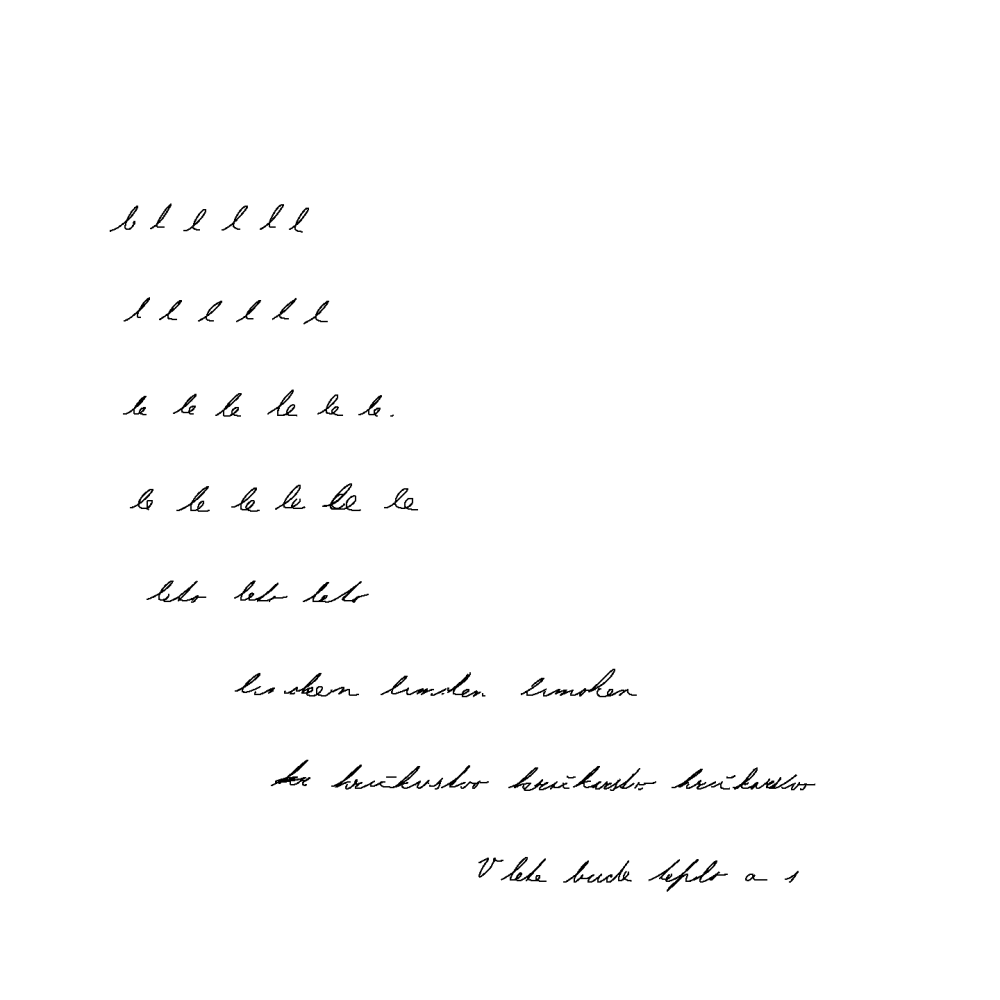 l l l l l l
l l l l l l
le le le le le le.
le le le le le le
leto leto leto
lamoken lamoken lamoken
hračkárstvo hračkarstvo hračkarstvo
V lete bude teplo a s